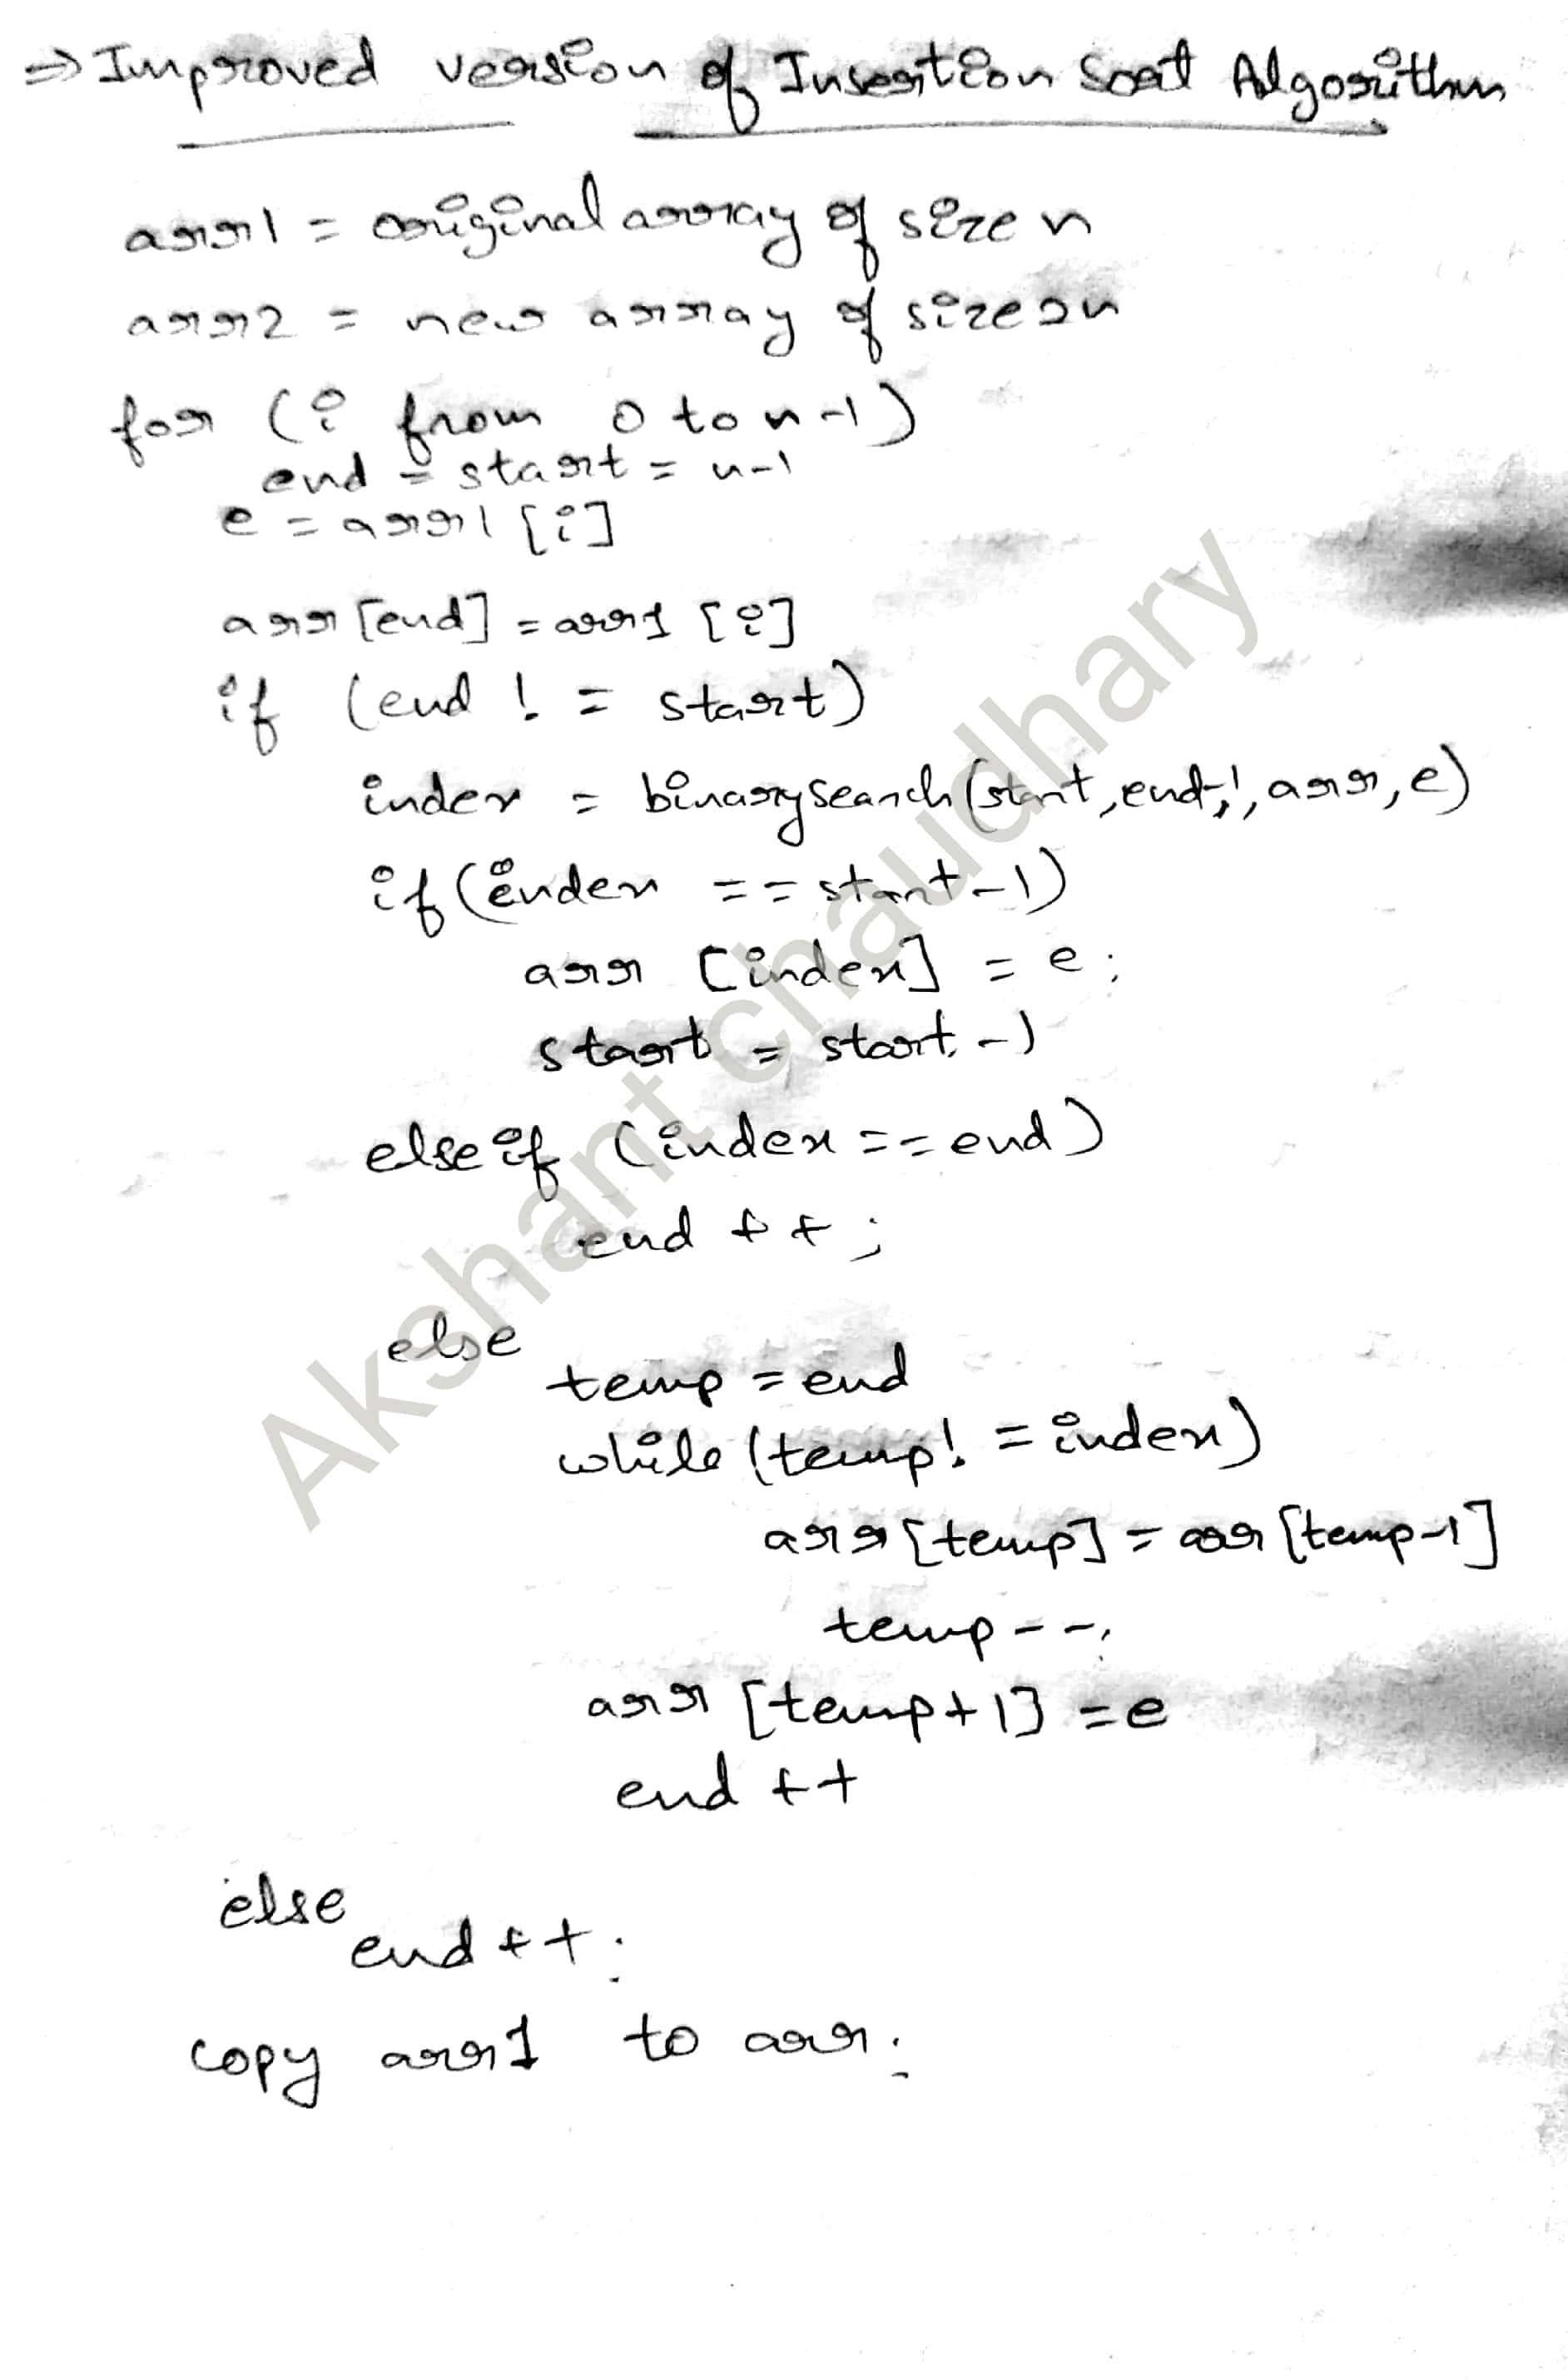 ⇒ Improved version of Insertion Sort Algorithm
arr1 = original array of size n
arr2 = new array of size 2n
for (i from 0 to n-1)
end = start = n-1
e = arr1 [i]
arr [end] = arr1 [i]
if (end ! = start)
index = binarysearch (start, end-1, arr, e)
if (index == start-1)
arr [index] = e;
start = start - 1
else if (index == end)
end ++;
else
temp = end
while (temp! = index)
arr [temp] = arr [temp-1]
temp--;
arr [temp+1] = e
end ++
else
end ++;
copy arr1 to arr;
Akshant chaudhary